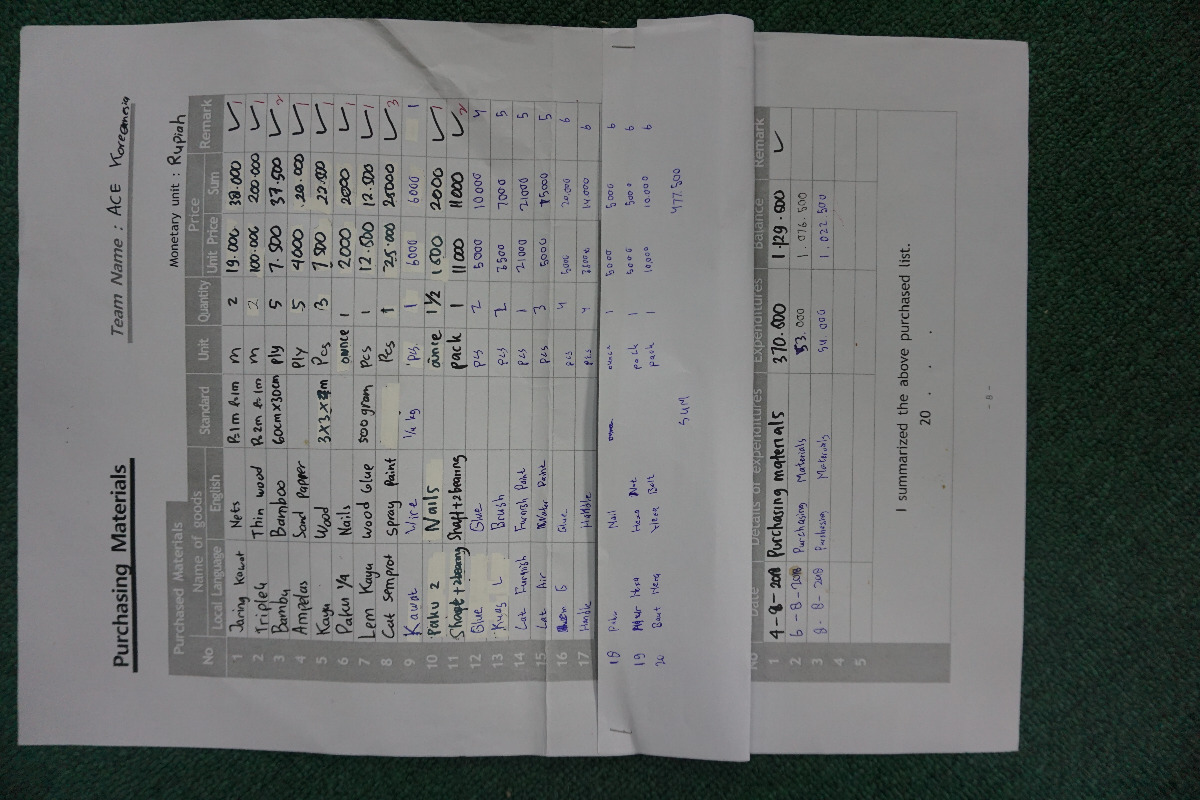 Purchasing Materials
Team Name : ACE Koreanesia
Monetary unit : Rupiah
Purchased Materials
No Name of goods Standard Unit Quantity Price Remark
Local Language English Unit Price Sum
1 Jaring Kawat Nets P.1m l.1m m 2 19.000 38.000 ✓ 1
2 Triplek Thin wood P.2m l.1m m 2 100.000 200.000 ✓ 1
3 Bambu Bamboo 60cmx30cm ply 5 7.500 37.500 ✓ 2
4 Ampelas Sand Papper Ply 5 4000 20.000 ✓ 1
5 Kayu Wood 3x3x2m Pcs 3 7500 22.500 ✓ 1
6 Paku 1/4 Nails ounce 1 2000 2000 ✓ 1
7 Lem Kayu Wood Glue 500 gram pcs 1 12.500 12.500 ✓ 1
8 Cat Semprot Spray Paint Pcs 1 25.000 25000 ✓ 3
9 Kawat Wire 1/4 kg pcs 1 6000 6000 1
10 Paku 2 Nails ounce 1 1/2 2000 ✓ 1
11 Shaft+2bearing Shaft+2bearing pack 1 11000 11000 ✓ 2
12 Glue Glue pcs 2 5000 10000 4
13 Kuas Brush pcs 2 3500 7000 5
14 Cat Furnish Furnish Paint pcs 1 21000 21000 5
15 Cat Air Water Paint pcs 3 5000 15000 5
16 Glue pcs 4 5000 20.000 6
17 Handle Handle pcs 4 14.000 6
18 Paku Nail ounce 1 5000 5000 6
19 Hexa Hexa Nut pack 1 5000 5000 6
20 Baut Hexa Hexa Bolt pack 1 10.000 10.000 6
SUM 477.500
No Date Details of expenditures Expenditures Balance Remark
1 4-8-2018 Purchasing materials 370.500 1.129.500 ✓
2 6-8-2018 Purchasing Materials 53.000 1.076.500
3 8-8-2018 Purchasing Materials 54.000 1.022.500
4
5
I summarized the above purchased list.
20 . .
- 8 -